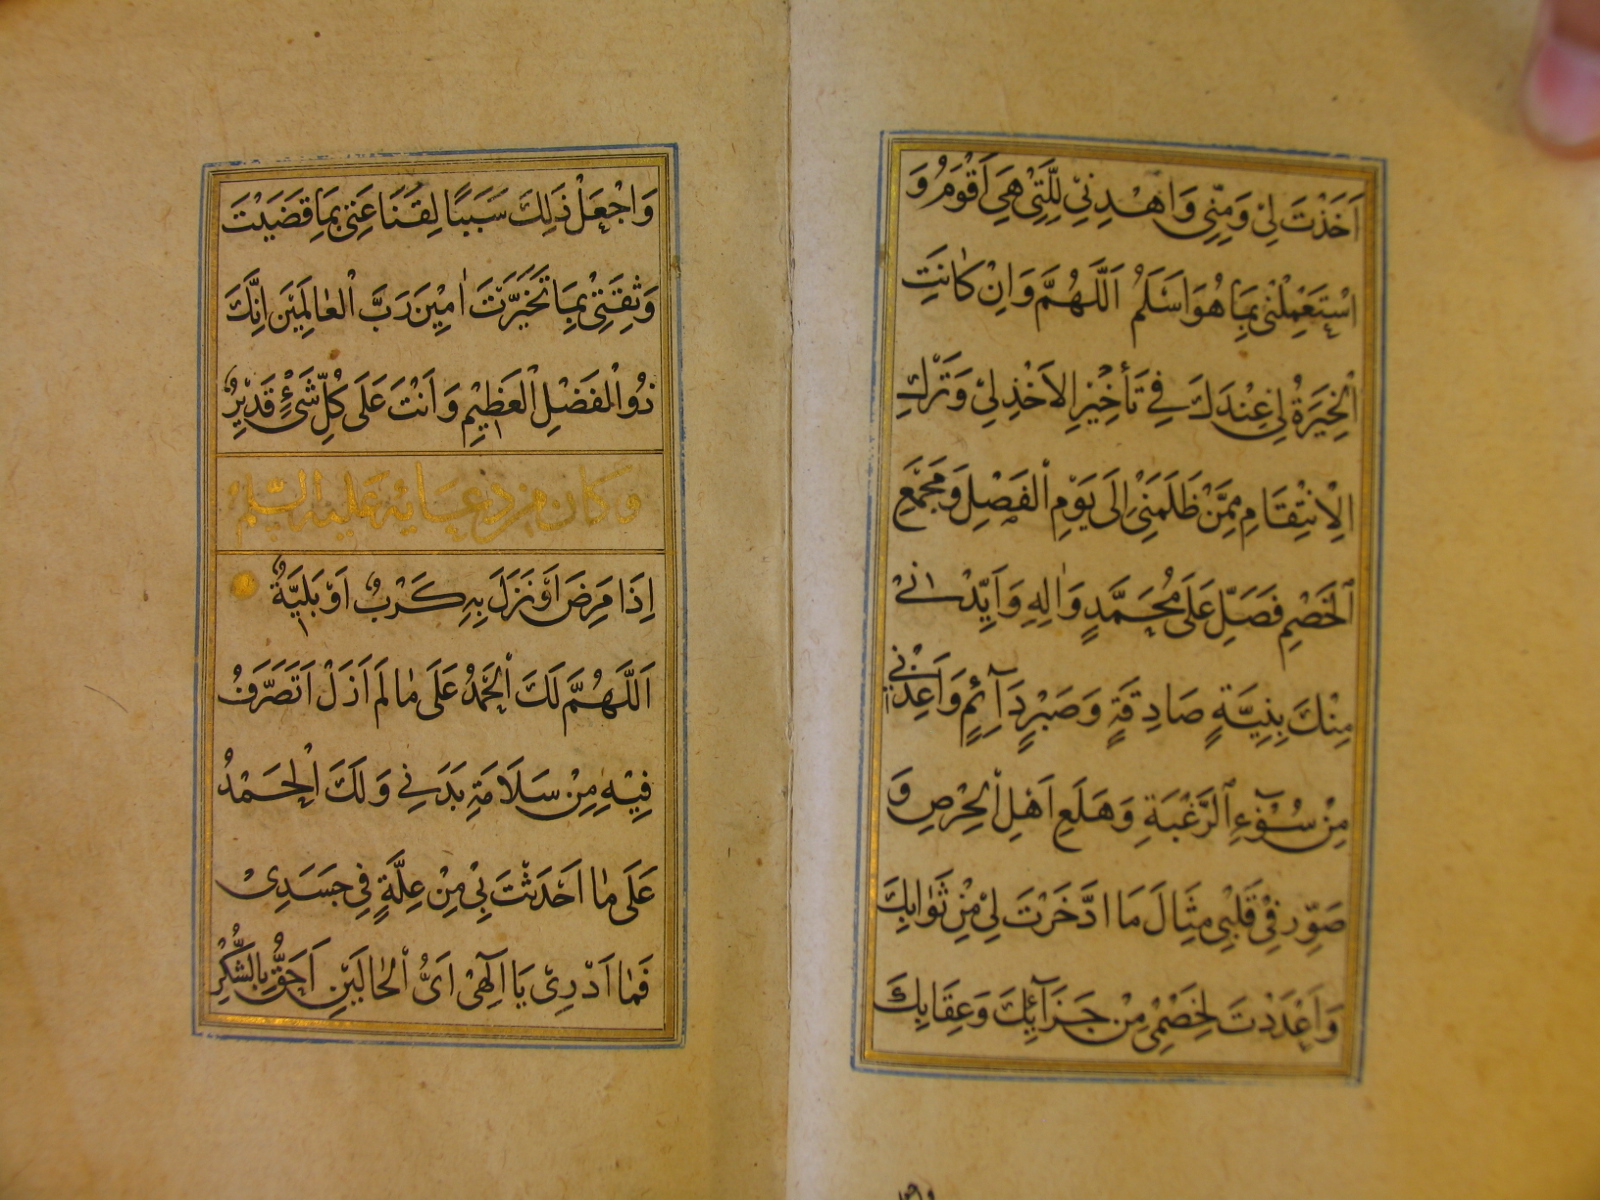 اَخَذْتَ لِیْ وَمِنِّی وَاهْدِنِیْ لِلَّتِیْ هِیَ اَقْوَمُ وَ
اسْتَعْمِلْنِیْ بِمَا هُوَ اَسْلَمُ اَللَّهُمَّ وَاِنْ كَانَتِ
الْخِیَرَةُ لِی عِنْدَكَ فِی تَأْخِیْرِ الْاَخْذِ لِیْ وَتَرْكِ
الْاِنْتِقَامِ مِمَّنْ ظَلَمَنِیْ اِلَی یَوْمِ الْفَصْلِ وَمَجْمَعِ
الْخَصْمِ فَصَلِّ عَلَی مُحَمَّدٍ وَاٰلِهِ وَاَیِّدْنِیْ
مِنْكَ بِنِیَّةٍ صَادِقَةٍ وَصَبْرٍ دَآئِمٍ وَاَعِذْنِیْ
مِنْ سُوْٓءِ الرَّغْبَةِ وَهَلَعِ اَهْلِ الْحِرْصِ وَ
صَوِّرْ فِیْ قَلْبِی مِثَالَ مَا ادَّخَرْتَ لِیْ مِنْ ثَوٰابِكَ
وَاَعْدَدْتَ لِخَصْمِیْ مِنْ جَزَآئِكَ وَعِقَابِكَ
وَاجْعَلْ ذٰلِكَ سَبَبًا لِقَنَاعَتِیْ بِمَا قَضَیْتَ
وَثِقَتِیْ بِمَا تَخَیَّرْتَ اٰمِیْنَ رَبَّ الْعٰالَمِیْنَ اِنَّكَ
ذُوالْفَضْلِ الْعَظِیْمِ وَاَنْتَ عَلَی كُلِّ شَیْءٍ قَدِیْرٌ
وكان من دعائه علیه السّلم
اِذَا مَرِضَ اَوْ نَزَلَ بِهِ كَرْبٌ اَوْ بَلِیَّةٌ
اَللَّهُمَّ لَكَ الْحَمْدُ عَلَی مٰا لَمْ اَزَلْ اَتَصَرَّفُ
فِیْهِ مِنْ سَلَامَةِ بَدَنِی وَلَكَ الْحَمْدُ
عَلَی مٰا اَحْدَثْتَ بِیْ مِنْ عِلَّةٍ فِی جَسَدِیْ
فَمٰا اَدْرِیْ یَا اِلٰهِیْ اَیُّ الْحٰالَیْنِ اَحَقُّ بِالشُّكْرِ